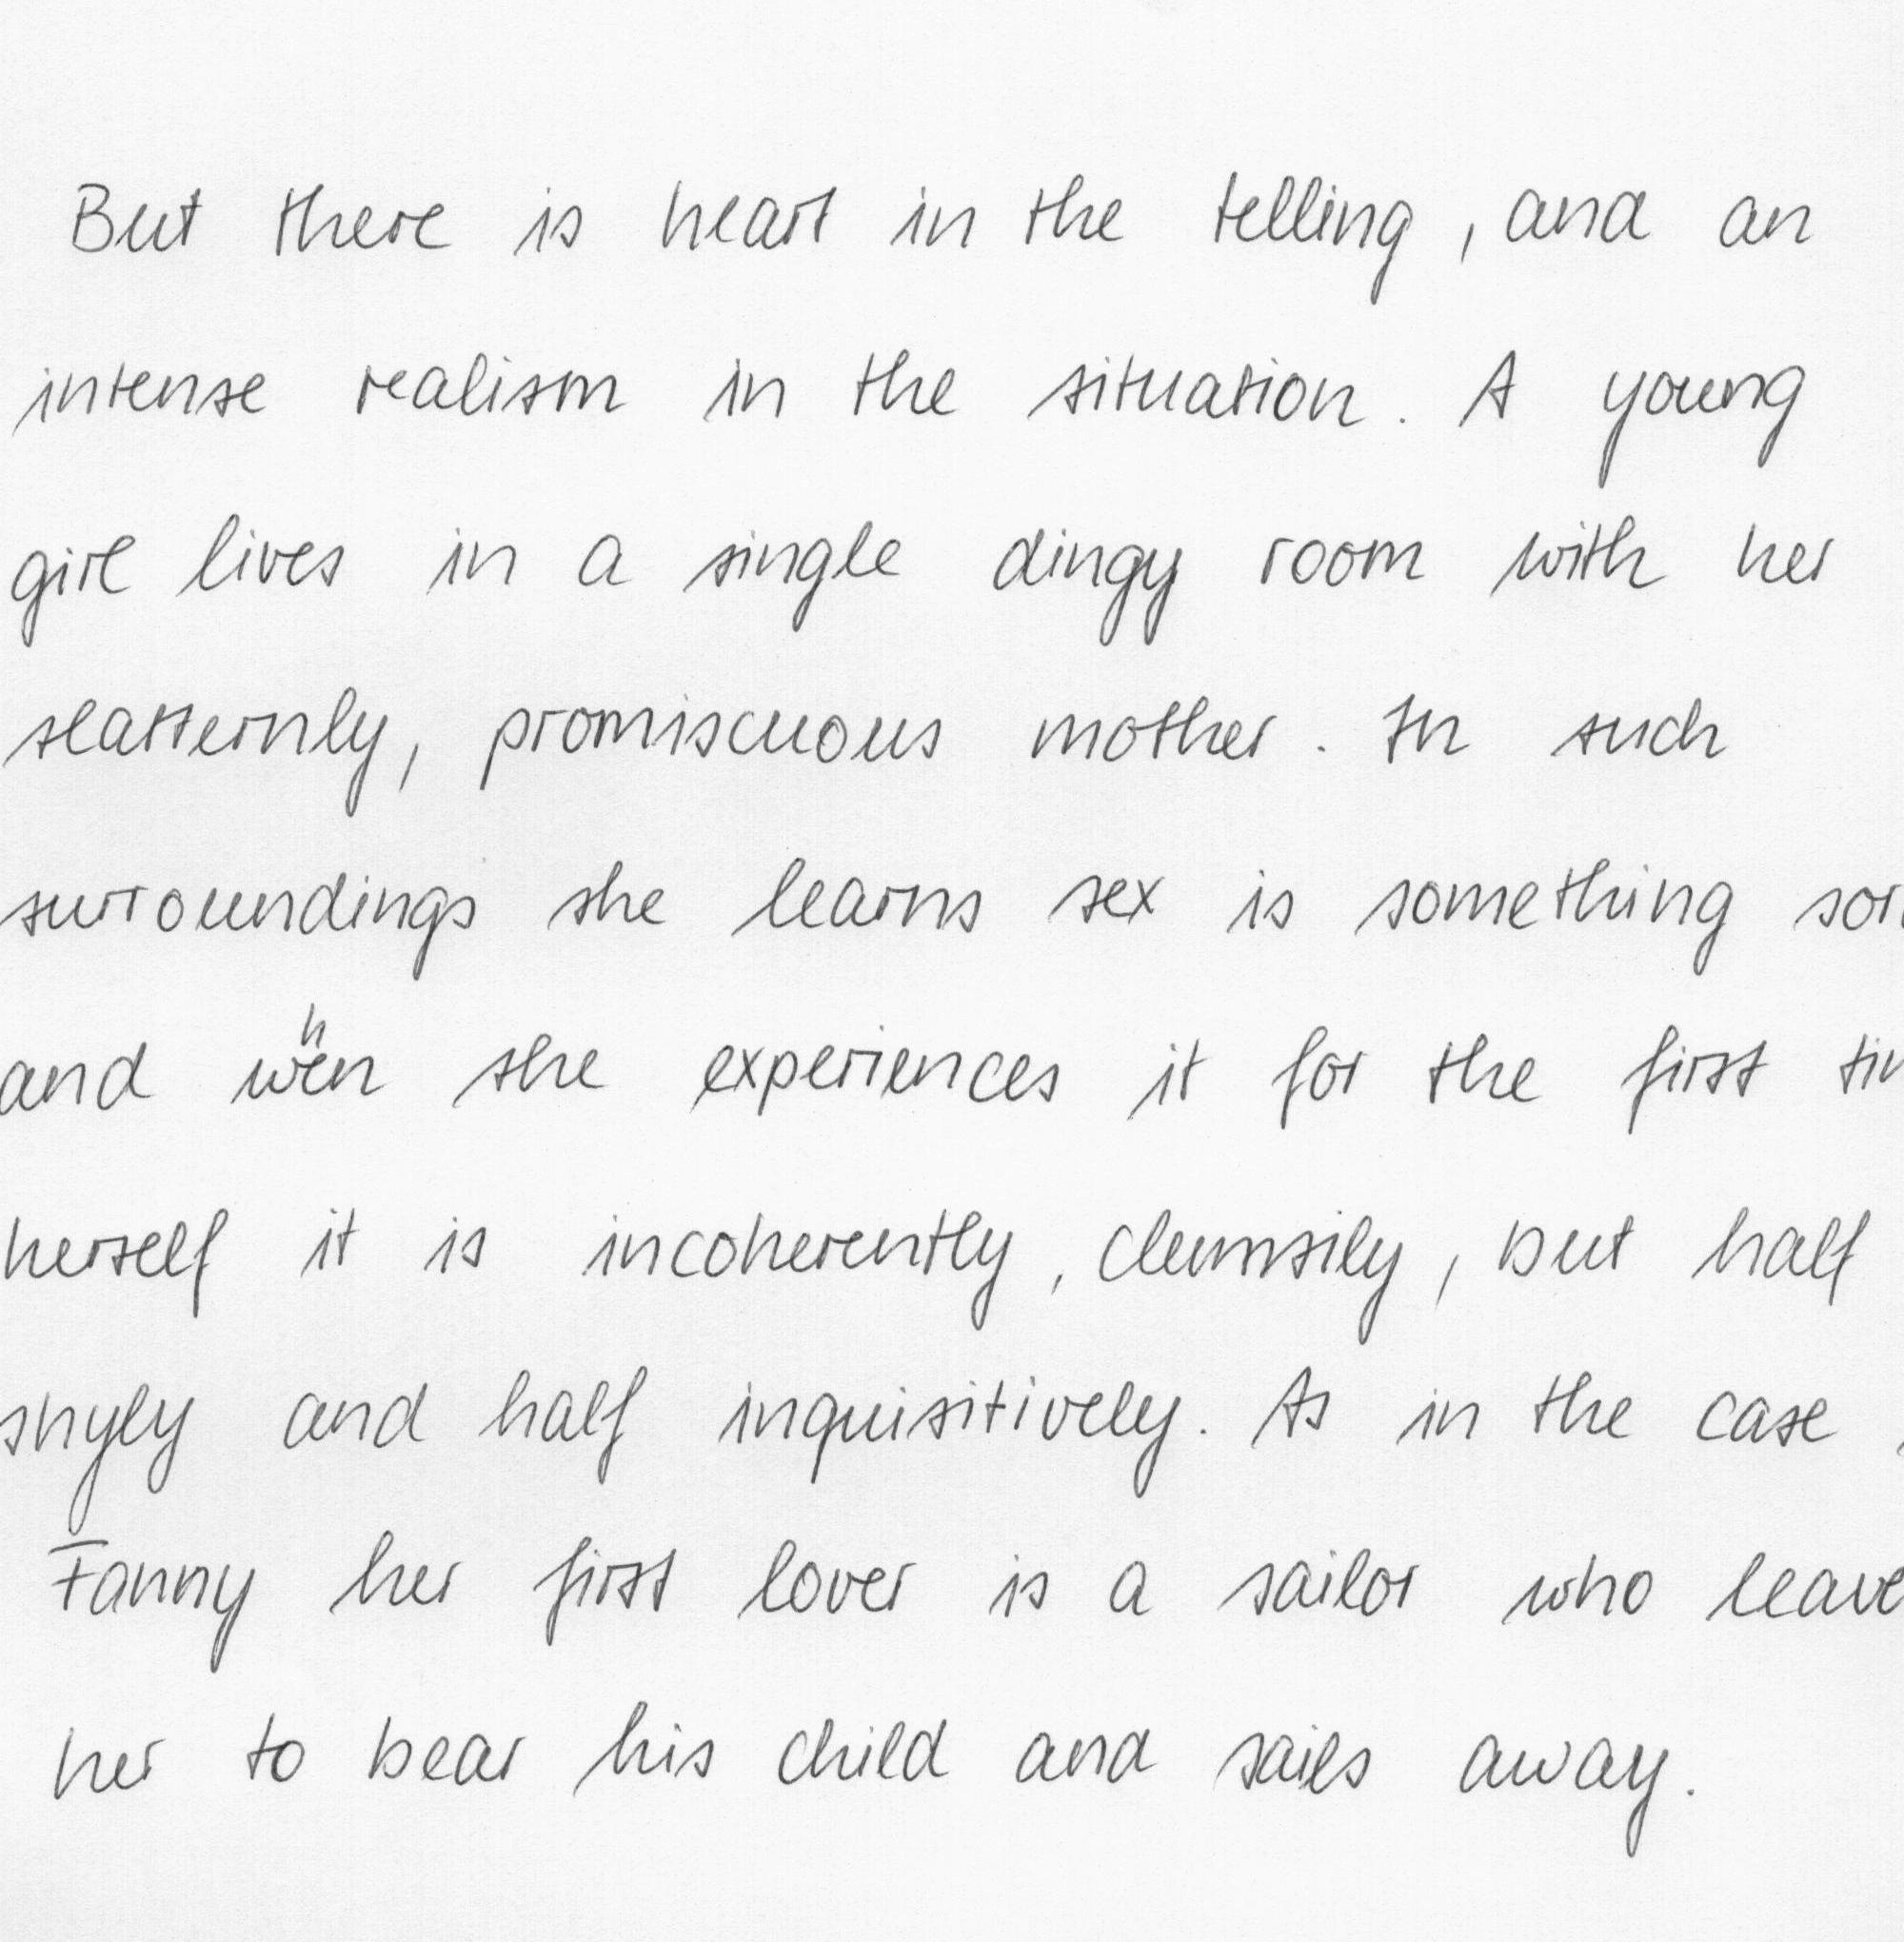 But there is heart in the telling, and an
intense realism in the situation. A young
girl lives in a single dingy room with her
slatternly, promiscuous mother. In such
surroundings she learns sex is something
and when she experiences it for the first
herself it is incoherently, clumsily, but half
shyly and half inquisitively. As in the case
Fanny her first lover is a sailor who
her to bear his child and sails away.